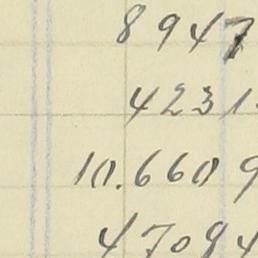 8947
4231
10.6609
47094